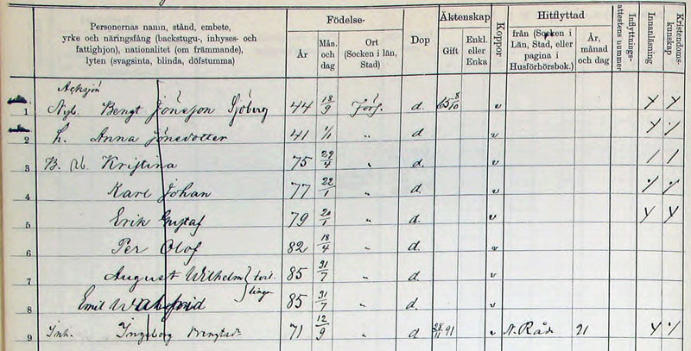 Personernas namn, stånd, embete,
yrke och näringsfång (backstugu-, inhyses- och
fattighjon), nationalitet (om främmande),
lyten (svagsinta, blinda, döfstumma)
Födelse-
År
Mån. och dag
Ort (Socken i län, Stad)
Dop
Äktenskap
Gift
Enkl. eller Enka
Koppor
Hitflyttad
från (Socken i Län, Stad, eller pagina i Husförhörsbok.)
År, månad och dag
Inflyttnings-attestens nummer
Innanläsning
Kristendoms-kunskap
1 Bengt Jönsson Sjöberg 44 18/9 d. 65 8/10
2 h. Anna Jönsdotter 41 „ d
3 Kristina 75 29/4 „ d.
4 Karl Johan 77 22/1 „ d
5 Erik Gustaf 79 20/1 „ d.
6 Per Olof 82 18/4 „ d.
7 August Wilhelm 85 31/7 „ d
8 Emil 85 31/7 „ d.
9 Inh. Ingeborg 71 12/9 d 91 N. Råda 91